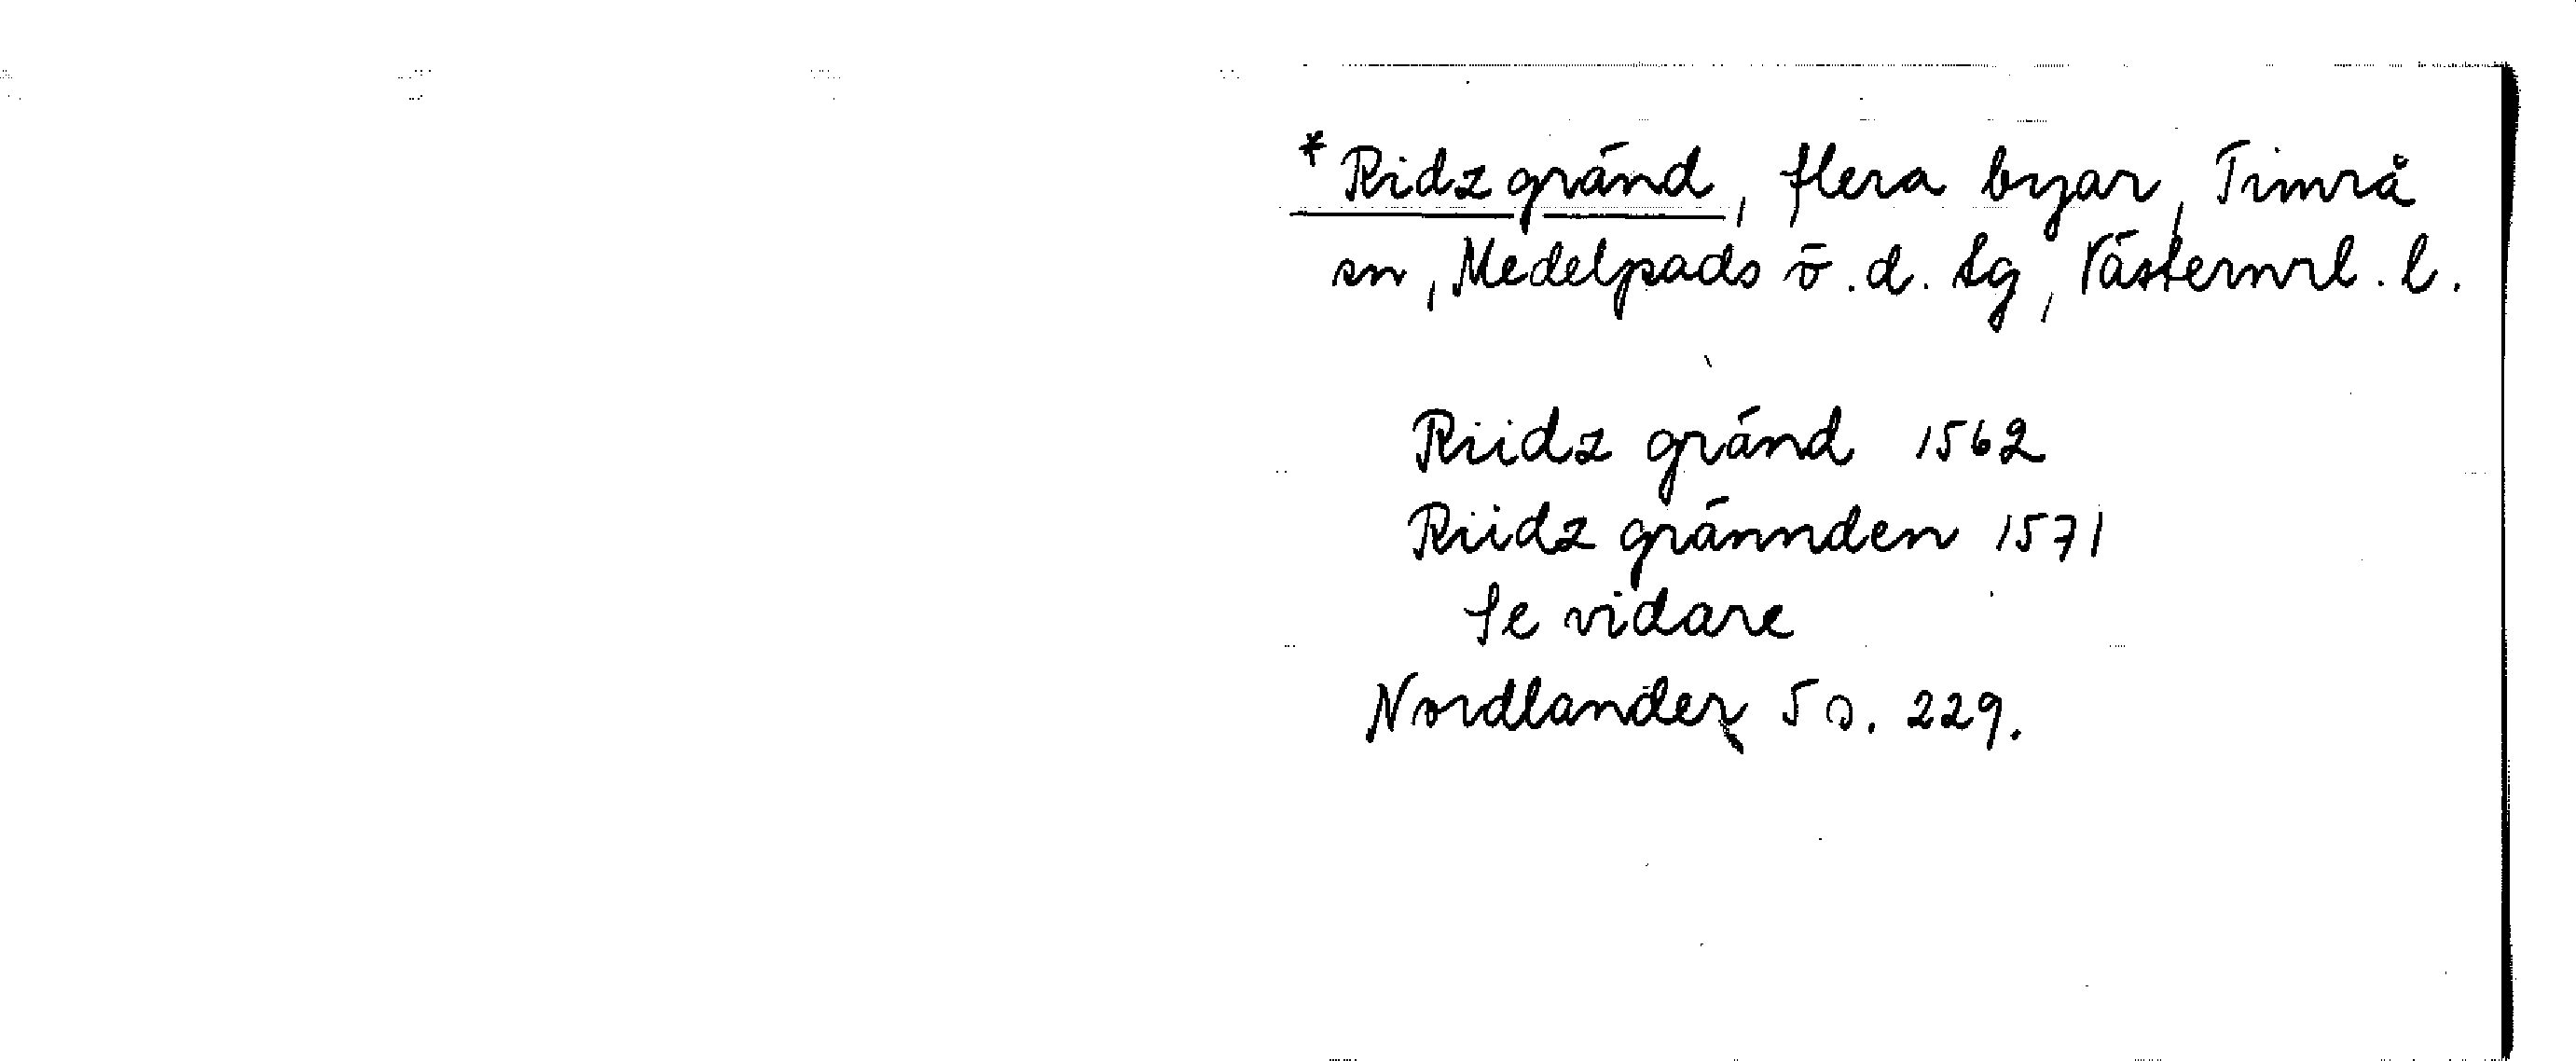 * Ridzgränd, flera byar, Timrå
sn, Medelpads ö. d. tg, Västernrl. l.
Riidz gränd 1562
Riidz grännden 1571
Se vidare
Nordlander 5 s. 229.